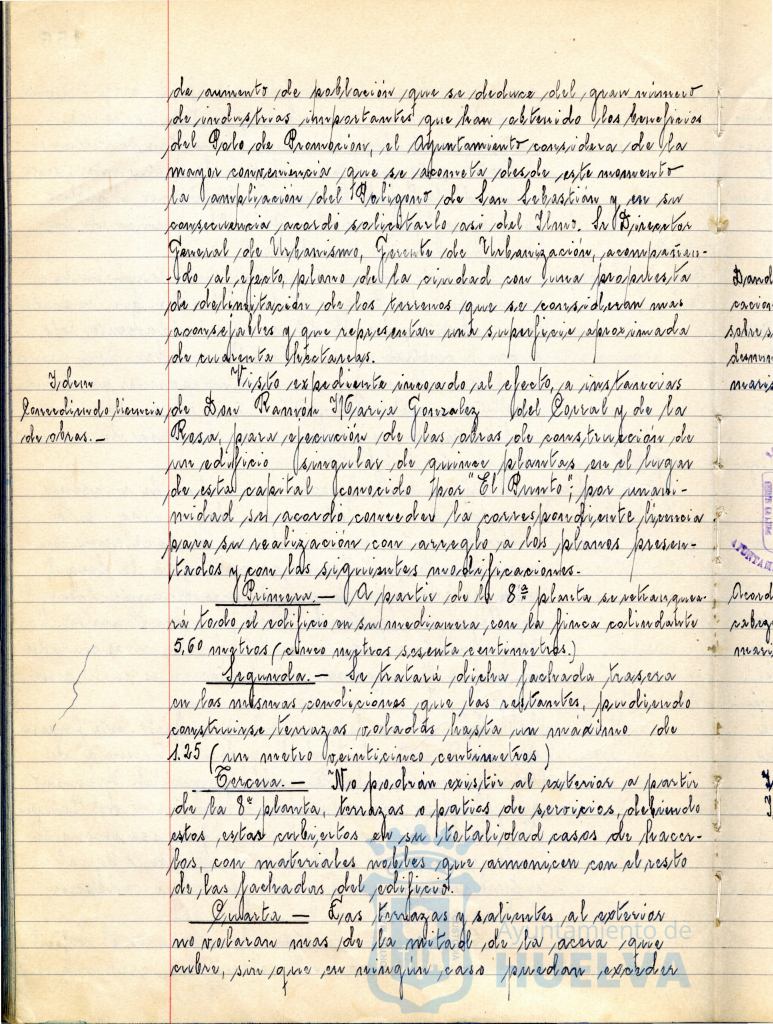 de aumento de población que se deduce del gran número
de industrias importantes que han obtenido los beneficios
del Polo de Promoción, el Ayuntamiento considera de la
mayor conveniencia que se acometa desde este momento
la ampliación del Polígono de San Sebastián y en su
consecuencia acordó solicitarlo asi del Ilmo. Sr Director
General de Urbanismo, Gerente de Urbanización, acompañan-
-do al efecto, plano de la ciudad con una propuesta
de delimitación de los terrenos que se consideran mas
aconsejables y que representan una superficie aproximada
de cuarenta hectareas.
Idem
Concediendo licencia
de obras.-
Visto expediente incoado al efecto, a instancias
de Don Ramón Maria Gonzalez del Corral y de la
Rosa, para ejecución de las obras de construcción de
un edificio singular de quince plantas en el lugar
de esta capital conocido por "El Punto"; por unani-
midad se acordó conceder la correspondiente licencia
para su realización con arreglo a los planos presen-
tados y con las siguientes modificaciones.-
Primera.- A partir de la 8ª planta se retranquea-
rá todo el edificio en su medianera con la finca colindante
5,60 metros (cinco metros sesenta centimetros.)
Segunda.- Se tratará dicha fachada trasera
en las mismas condiciones que las restantes, pudiendo
construirse terrazas voladas hasta un máximo de
1.25 (un metro veinticinco centimetros)
Tercera.- No podrán existir al exterior a partir
de la 8ª planta, terrazas o patios de servicios, debiendo
estos, estar cubiertos en su totalidad casos de hacer-
los, con materiales nobles que armonicen con el resto
de las fachadas del edificio.
Cuarta - Las terrazas y salientes al exterior
no volaran mas de la mitad de la acera que
cubre, sin que en ningún caso puedan exceder
Ayuntamiento de
HUELVA